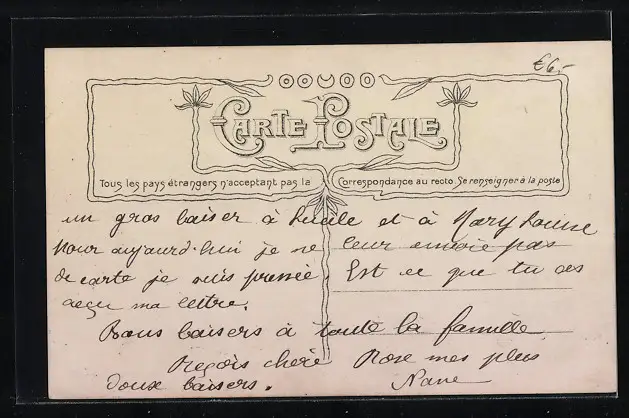 €6.-
CARTE POSTALE
Tous les pays étrangers n'acceptant pas la Correspondance au recto Se renseigner à la poste
un gros baiser à Lucile et à Mary Louise
Pour aujourd'hui je ne leur envoie pas
de carte je suis pressée, Est ce que tu as
reçu ma lettre.
Bons baisers à toute la famille
Reçois chère Rose mes plus
doux baisers. Nane